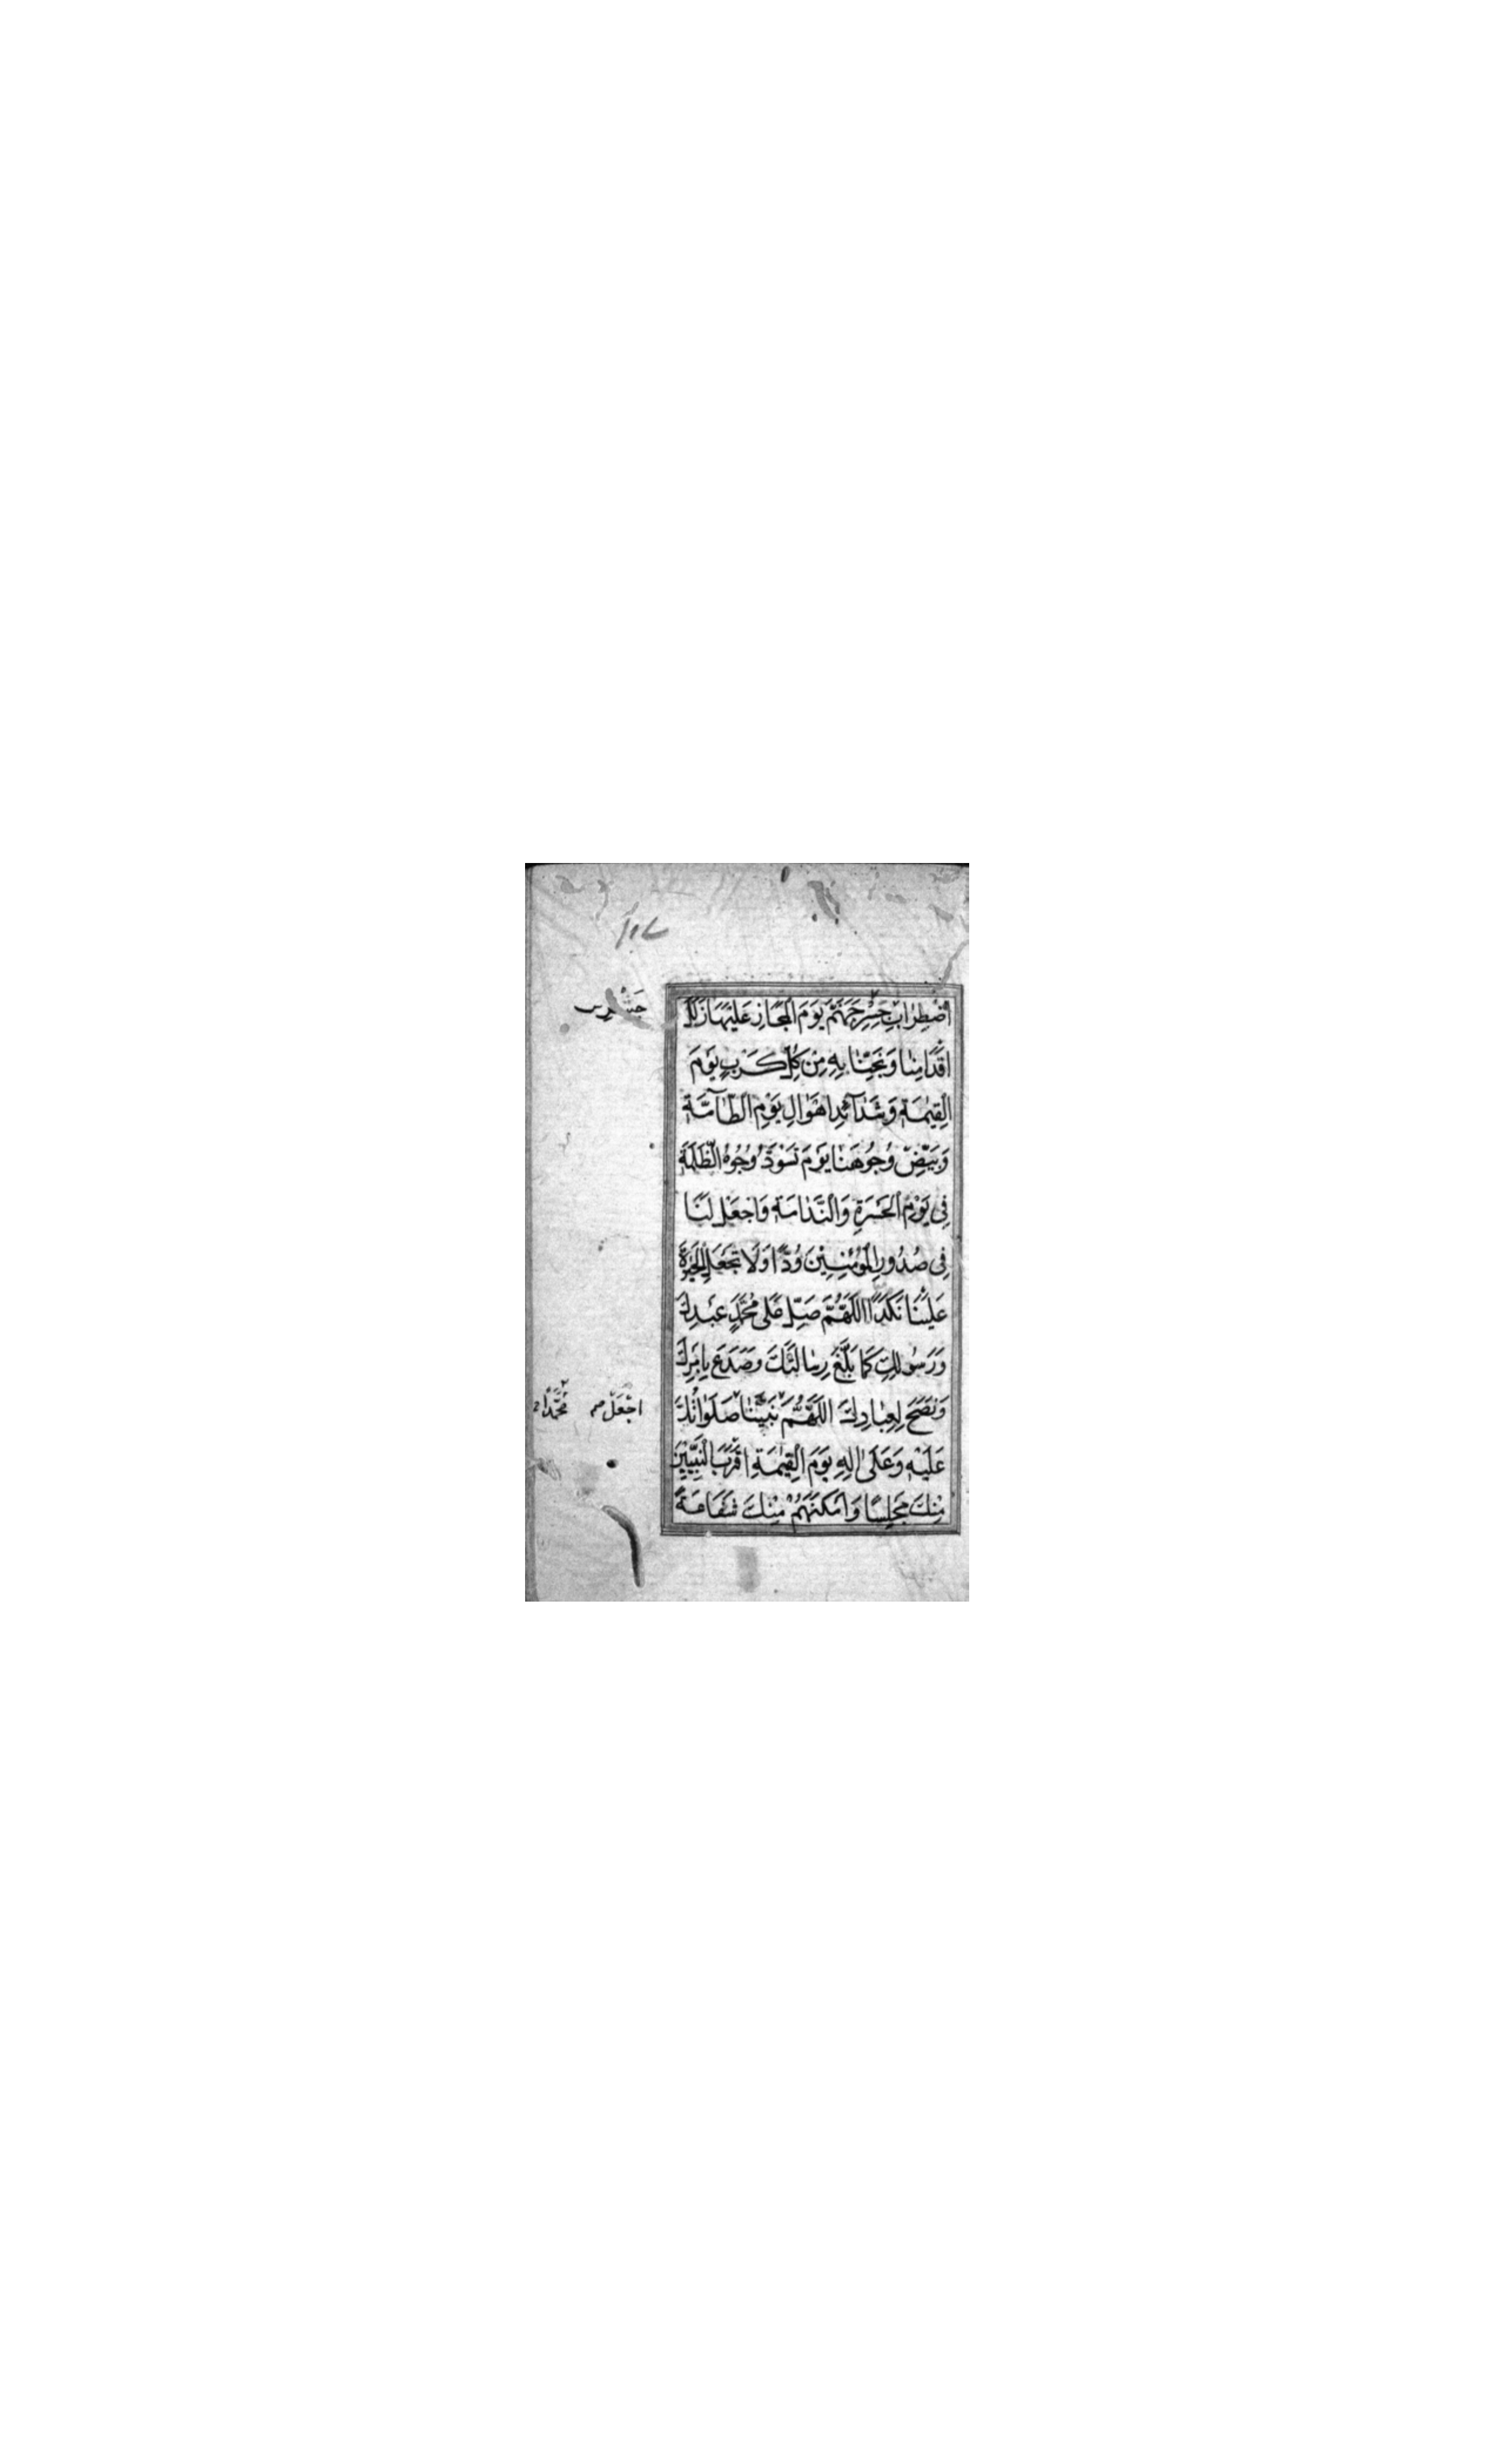 اضْطِرَابِ جِسْرِ جَهَنَّمَ يَوْمَ الْمَجَازِ عَلَيْهَا زَلَلَ
اَقْدَامِنَا وَنَجِّنَا بِهِ مِنْ كُلِّ كَرْبٍ يَوْمَ
الْقِيٰمَةِ وَشَدَآئِدِ اَهْوَالِ يَوْمِ الطَّآمَّةِ
وَبَيِّضْ وُجُوهَنَا يَوْمَ تَسْوَدُّ وُجُوهُ الظَّلَمَةِ
فِي يَوْمِ الْحَسْرَةِ وَالنَّدَامَةِ وَاجْعَلْ لَنَا
فِي صُدُورِ الْمُؤْمِنِيْنَ وُدًّا وَلَا تَجْعَلِ الْحَيٰوةَ
عَلَيْنَا نَكَدًا اَللّٰهُمَّ صَلِّ عَلٰى مُحَمَّدٍ عَبْدِكَ
وَرَسُولِكَ كَمَا بَلَّغَ رِسَالَتَكَ وَصَدَعَ بِاَمْرِكَ
وَنَصَحَ لِعِبَادِكَ اَللّٰهُمَّ نَبِيَّنَا صَلَوَاتُكَ
عَلَيْهِ وَعَلٰى اٰلِهِ يَوْمَ الْقِيٰمَةِ اَقْرَبَ النَّبِيِّيْنَ
مِنْكَ مَجْلِسًا وَاَمْكَنَهُمْ مِنْكَ شَفَاعَةً
اجْعَلْ
مُحَمَّدًا